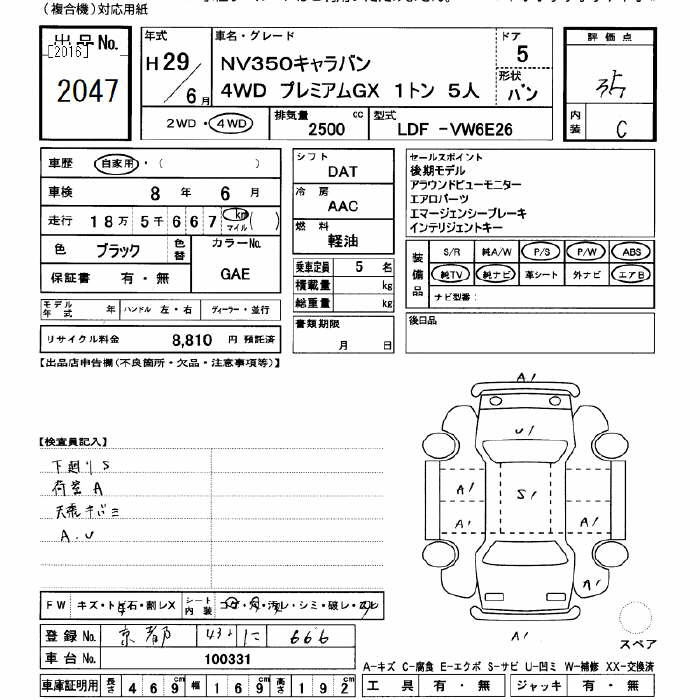 (複合機)対応用紙
出品No.
[2016]
2047
年式
H29/6月
車名・グレード
NV350キャラバン
4WD プレミアムGX 1トン 5人
ドア
5
形状
バン
評価点
内装 C
2WD・4WD
排気量 2500 cc
型式 LDF -VW6E26
車歴 自家用・( )
車検 8年 6月
走行 18万5千667 km マイル ( )
色 ブラック 色替
カラーNo. GAE
保証書 有・無
モデル年式 年 ハンドル 左・右 ディーラー・並行
リサイクル料金 8,810 円 預託済
シフト DAT
冷房 AAC
燃料 軽油
乗車定員 5 名
積載量 kg
総重量 kg
書類期限
月 日
セールスポイント
後期モデル
アラウンドビューモニター
エアロパーツ
エマージェンシーブレーキ
インテリジェントキー
装備品
S/R 純A/W P/S P/W ABS
純TV 純ナビ 革シート 外ナビ エアB
ナビ型番:
後日品
【出品店申告欄(不良箇所・欠品・注意事項等)】
【検査員記入】
下廻りS
荷室A
天張キバミ
A.U
A1
U1
A1
S1
A1
A1
A1
A1
スペア
FW キズ・トビ石・割レX
シート内装 コゲ・穴・汚レ・シミ・破レ・スレ
登録No. 京都 432 に 666
車台No. 100331
車庫証明用 長さ 469cm 幅 169cm 高さ 192cm
A-キズ C-腐食 E-エクボ S-サビ U-凹ミ W-補修 XX-交換済
工具 有・無 ジャッキ 有・無